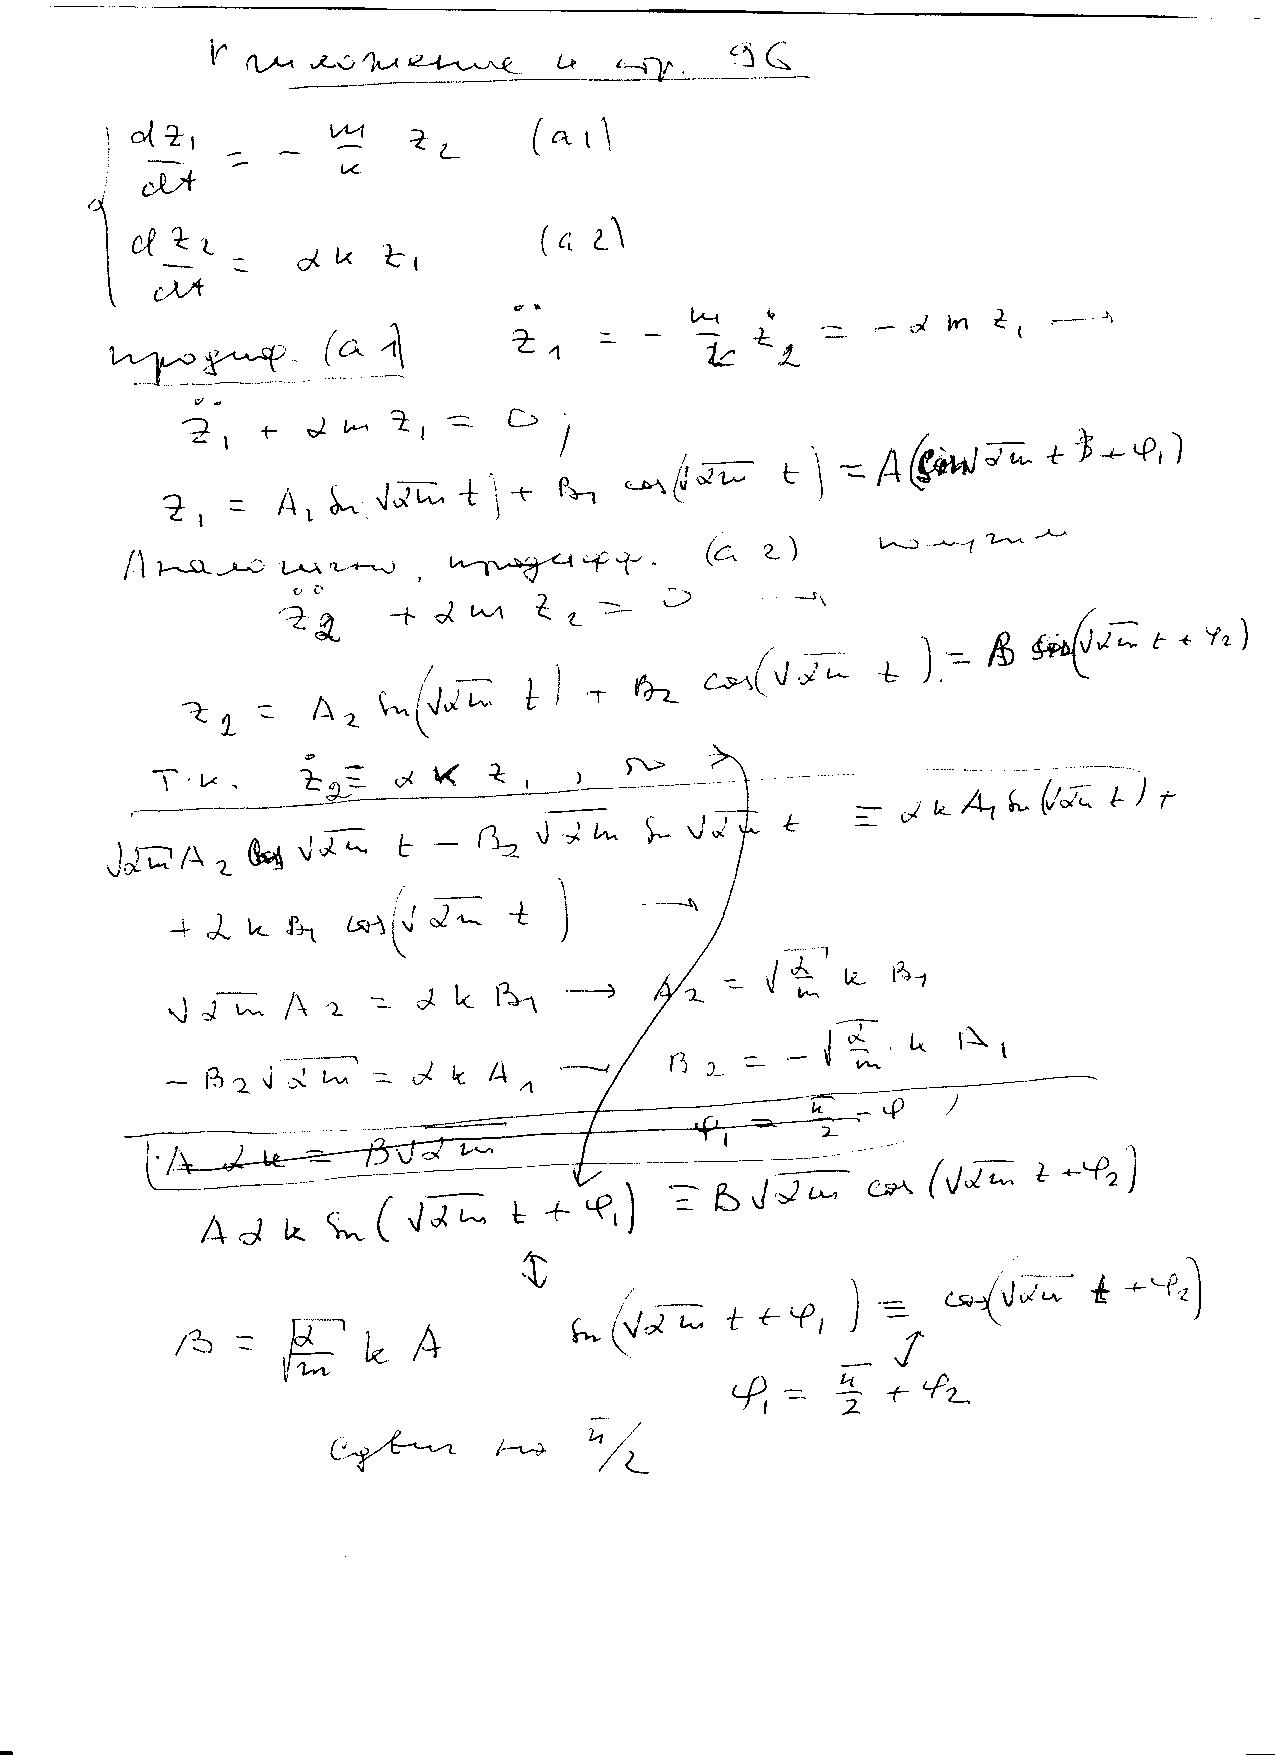 Приложение к стр. 96
dz₁/dt = - m/k z₂ (a1)
dz₂/dt = αk z₁ (a2)
продиф. (a1) z̈₁ = - m/k ż₂ = - αm z₁ →
z̈₁ + αm z₁ = 0;
z₁ = A₁ sin √αm t) + B₁ cos(√αm t) = A(sin √αm t + φ₁)
Аналогично, продифф. (a2) получим
z̈₂ + αm z₂ = 0 →
z₂ = A₂ sin(√αm t) + B₂ cos(√αm t) = B sin(√αm t + φ₂)
Т.к. ż₂ ≡ αk z₁, то
√αm A₂ cos √αm t - B₂ √αm sin √αm t ≡ αk A₁ sin(√αm t) +
+ αk B₁ cos(√αm t) →
√αm A₂ = αk B₁ → A₂ = √α/m k B₁
- B₂ √αm = αk A₁ → B₂ = - √α/m · k A₁
A αk = B√αm φ₁ = π/2 - φ
A αk sin(√αm t + φ₁) ≡ B√αm cos(√αm t + φ₂)
↕
B = √α/m k A sin(√αm t + φ₁) ≡ cos(√αm t + φ₂)
↕
φ₁ = π/2 + φ₂
сдвиг на π/2